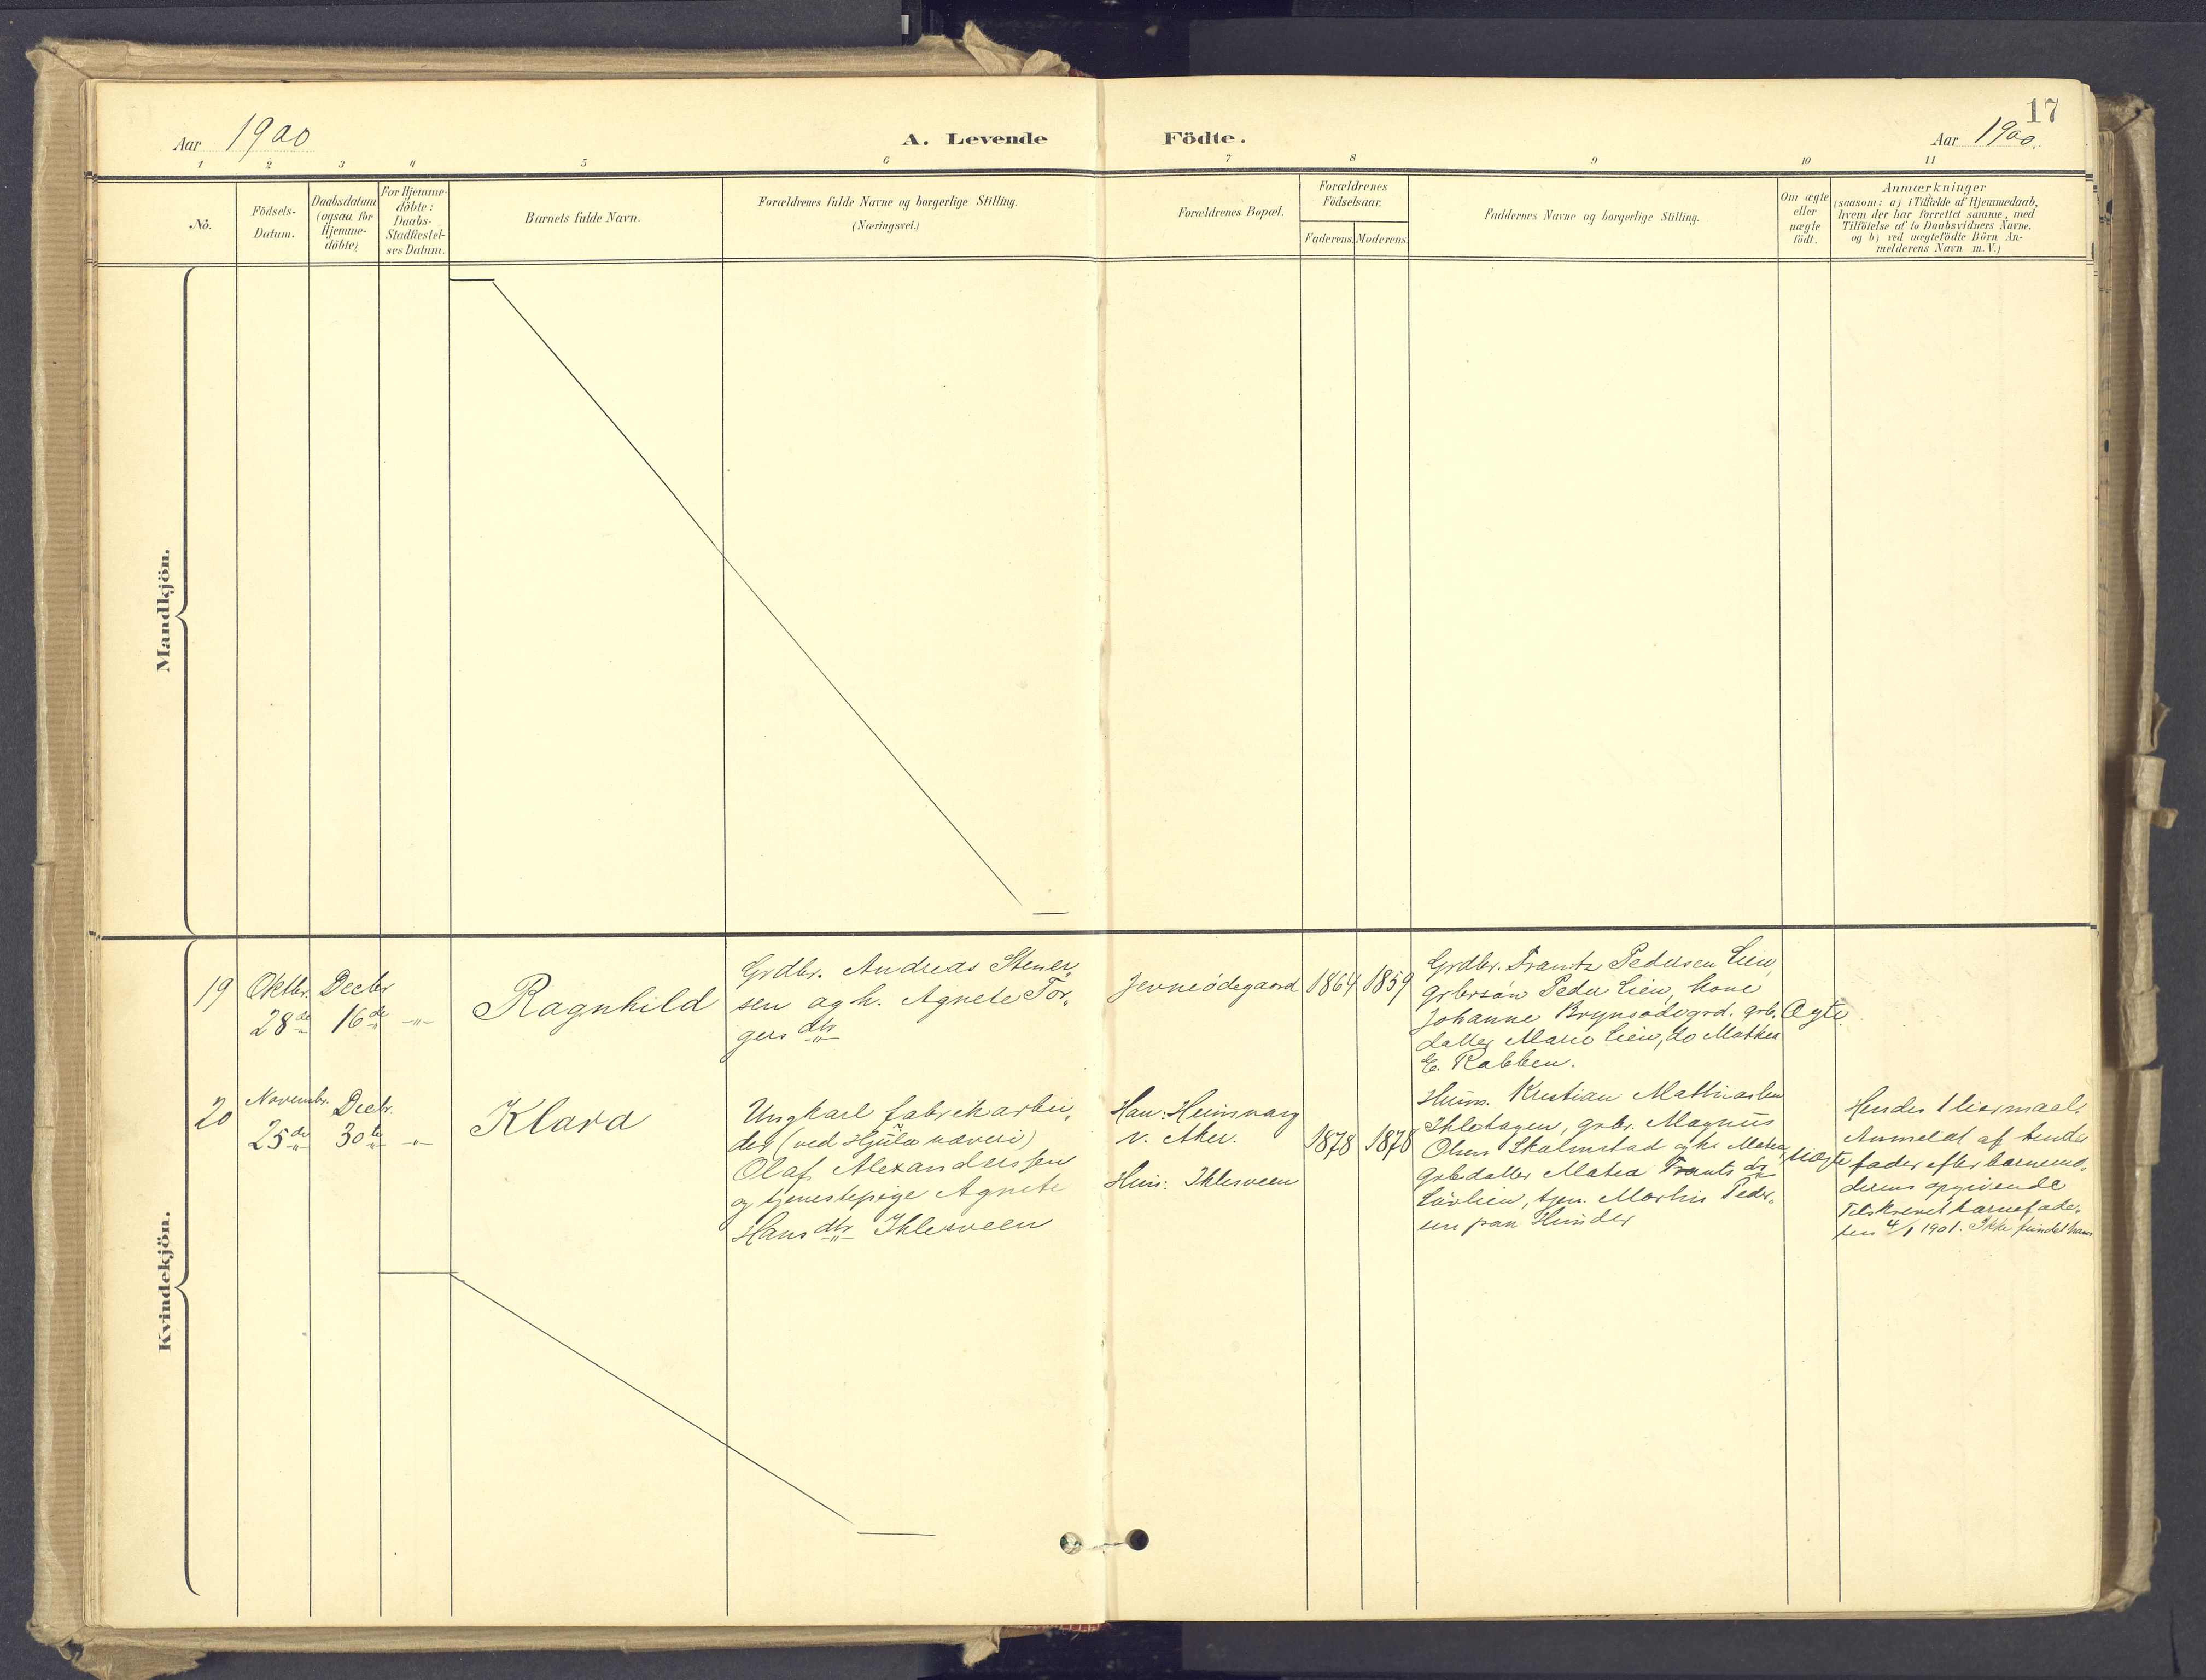 17
Aar 1900
A. Levende Födte.
Aar 1900.
1 2 3 4 5 6 7 8 9 10 11
No.
Födsels-
Datum.
Daabsdatum
(ogsaa for
Hjemme-
döbte)
For Hjemme-
döbte:
Daabs-
Stadfæstel-
ses Datum.
Barnets fulde Navn.
Forældrenes fulde Navne og borgerlige Stilling.
(Næringsvei.)
Forældrenes Bopæl.
Forældrenes
Födselsaar.
Faderens. Moderens.
Faddernes Navne og borgerlige Stilling.
Om ægte
eller
uægte
födt.
Anmærkninger
(saasom: a) i Tilfælde af Hjemmedaab,
hvem der har forrettet samme, med
Tilföielse af to Daabsvidners Navne.
og b) ved uægtefödte Börn An-
melderens Navn m. V.)
Mandkjön.
Kvindekjön.
19
Oktbr.
28de
Decbr
16de
-"-
Ragnhild
Grdbr. Andreas Stener-
sen og h. Agnete Tor-
gersdtr
Jevneödegaard
1864
1859
Grdbr. Frantz Pedersen Lien,
grbrsön Peder Lien, kone
Johanne Brynsödegrd. grb.
datter Marie Lien, do Mathea
E. Rabben.
Ægte.
20
Novembr.
25de
Decbr.
30te
-"-
Klara
Ungkarl fabrikarbei-
der (ved Hjula væveri)
Olaf Alexanderssen
og tjenestepige Agnete
Hansdtr Ihlesveen
Han: Heimvang
v. Aker.
Hun: Ihlesveen
1878
1878
Husm. Kristian Mathiassen
Ihlehagen, grbr. Magnus
Olsen Skalmstad og k. Mathea,
grbdatter Matea Frantsdr
Lövlien, tjen. Martin Peder-
sen paa Hunder
Uægte
Hendes 1 leiermaal.
Anmeldt af hendes
fader efter barnemo-
derens opgivende
Tilskrevet barnefade-
ren 4/1 1901. Ikke fundet ham